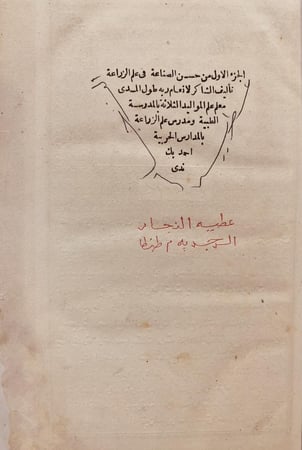 الجزء الاول من حسن الصناعة فى علم الزراعة
تأليف الشاكر لانعام ربه طول المدى
معلم علم المواليد الثلاثة بالمدرسة
الطبية ومدرس علم الزراعة
بالمدارس الحربية
احمد بك
ندى
عطيه النجار
الرجديه م طنطا